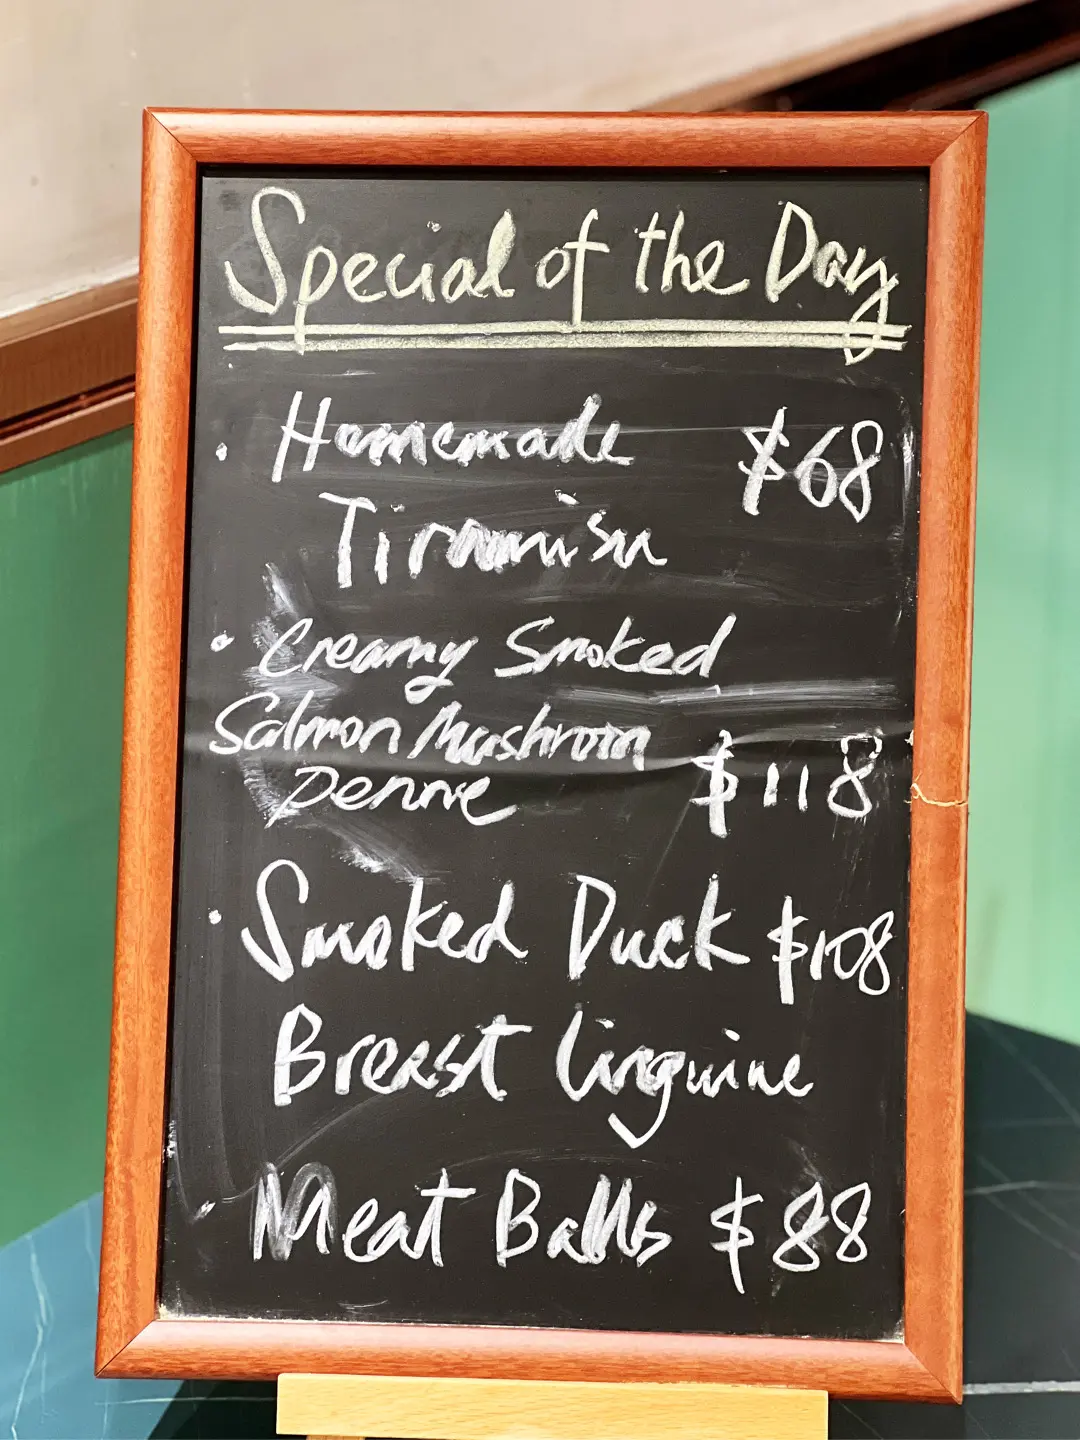 Special of the Day
· Homemade $68
Tiramisu
· Creamy Smoked
Salmon Mushroom
Penne $118
· Smoked Duck $108
Breast Linguine
· Meat Balls $88